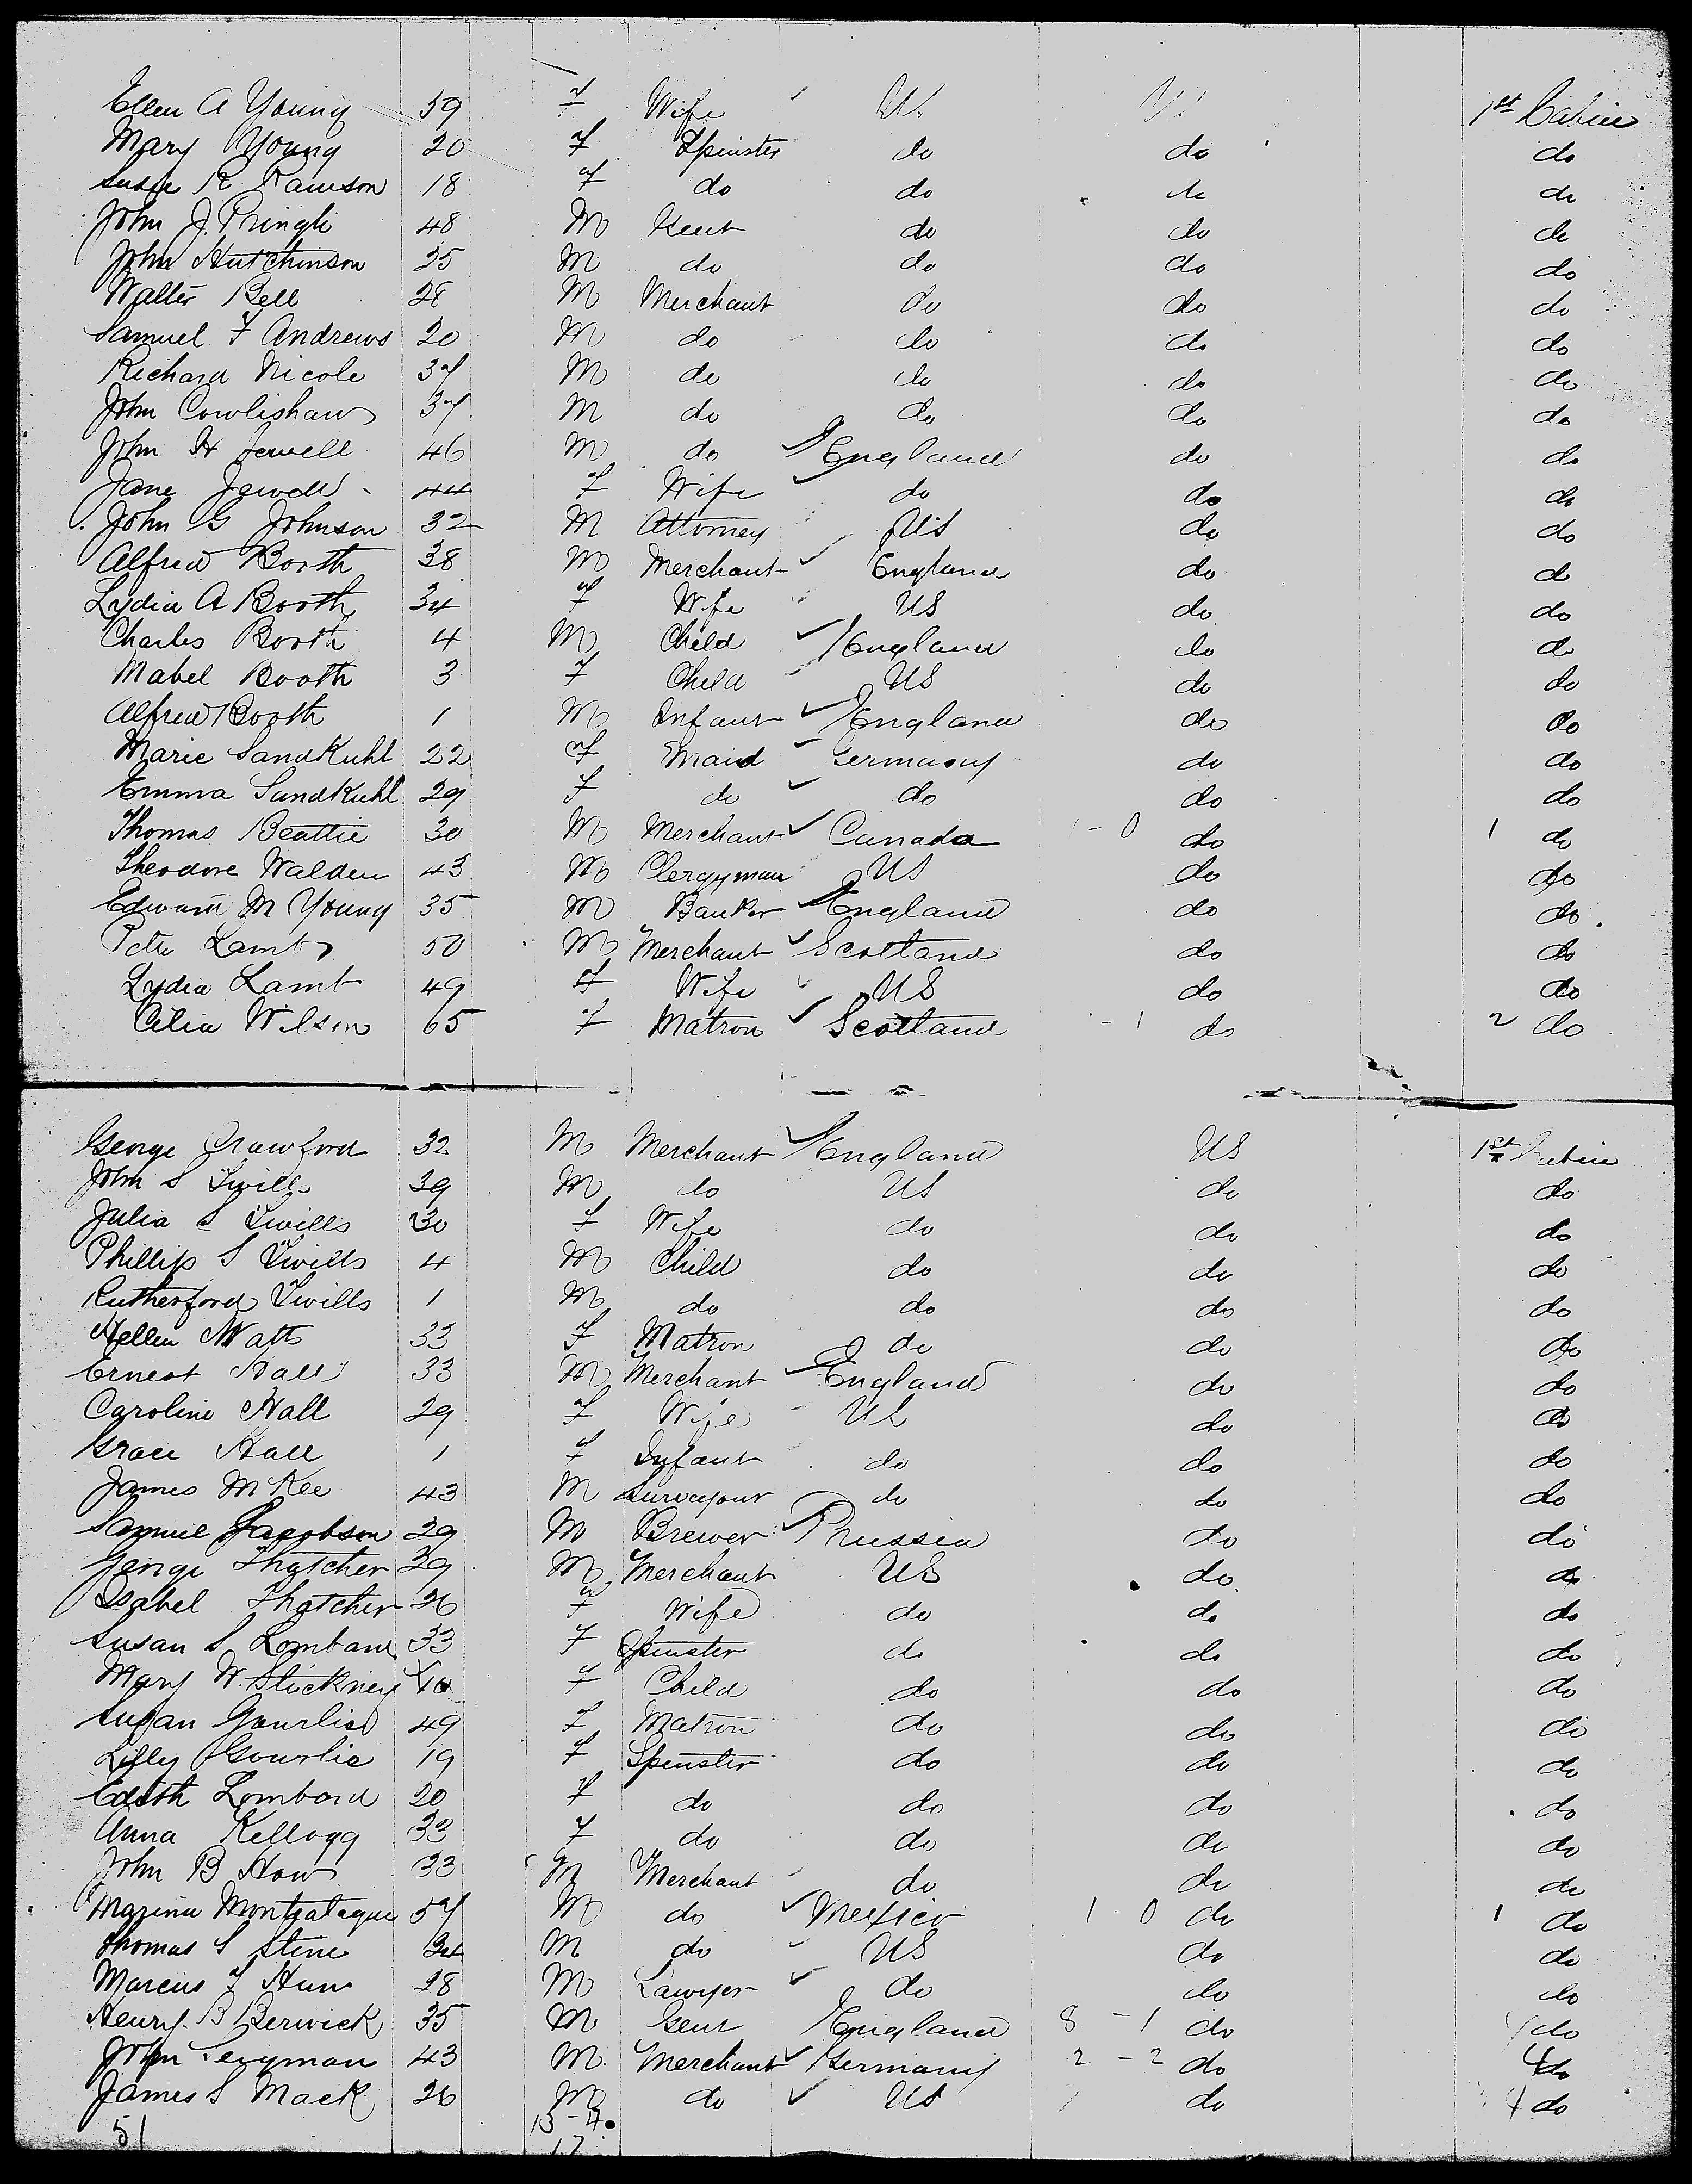 Ellen A Young 59 F Wife ✓ US US 1st Cabin
Mary Young 20 F Spinster do do do
Susie R Rawson 18 F do do do do
John J. Pringle 48 M Gent do do do
John Hutchinson 25 M do do do do
Walter Bell 28 M Merchant do do do
Samuel F Andrews 20 M do do do do
Richard Nicole 37 M do do do do
John Cowlishaw 37 M do do do do
John H Jewell 46 M do ✓ England do do
Jane Jewell 44 F Wife ✓ do do do
John G Johnson 32 M Attorney US do do
Alfred Booth 38 M Merchant ✓ England do do
Lydia A Booth 34 F Wife US do do
Charles Booth 4 M Child ✓ England do do
Mabel Booth 3 F Child US do do
Alfred Booth 1 M Infant ✓ England do do
Marie Sandkuhl 22 F Maid ✓ Germany do do
Emma Sandkuhl 29 F do ✓ do do do
Thomas Beattie 30 M Merchant ✓ Canada 1 - 0 do 1 do
Theodore Walden 43 M Clergyman US do do
Edward M Young 35 M Banker ✓ England do do
Peter Lamb 50 M Merchant ✓ Scotland do do
Lydia Lamb 49 F Wife US do do
Celia Wilson 65 F Matron ✓ Scotland - 1 do 2 do
George Crawford 32 M Merchant ✓ England US 1st Cabin
John S 39 M do US do do
Julia S 30 F Wife do do do
Phillip S 4 M Child do do do
Rutherford 1 M do do do do
Hellen Watts 33 F Matron do do do
Ernest Hall 33 M Merchant ✓ England do do
Caroline Hall 29 F Wife US do do
Grace Hall 1 F Infant do do do
James McKee 43 M Surveyour do do do
Samuel Jacobson 29 M Brewer ✓ Prussia do do
George Thatcher 39 M Merchant US do do
Isabel Thatcher 36 F Wife do do do
Susan S Lombard 33 F Spinster do do do
Mary W. Stickney 10 F Child do do do
Susan Gourlie 49 F Matron do do do
Lilly Gourlie 19 F Spinster do do do
Edith Lombard 20 F do do do do
Anna Kellogg 33 F do do do do
John B How 33 M Merchant do do do
57 M do ✓ Mexico 1 - 0 do 1 do
Thomas S Stine 34 M do ✓ US do do
Marcus F Hun 28 M Lawyer ✓ do do do
Henry B Berwick 35 M Gent England 8 - 1 do do
John 43 M Merchant ✓ Germany 2 - 2 do 4 do
James S Mack 26 M do ✓ US do do
51 13 - 4
17